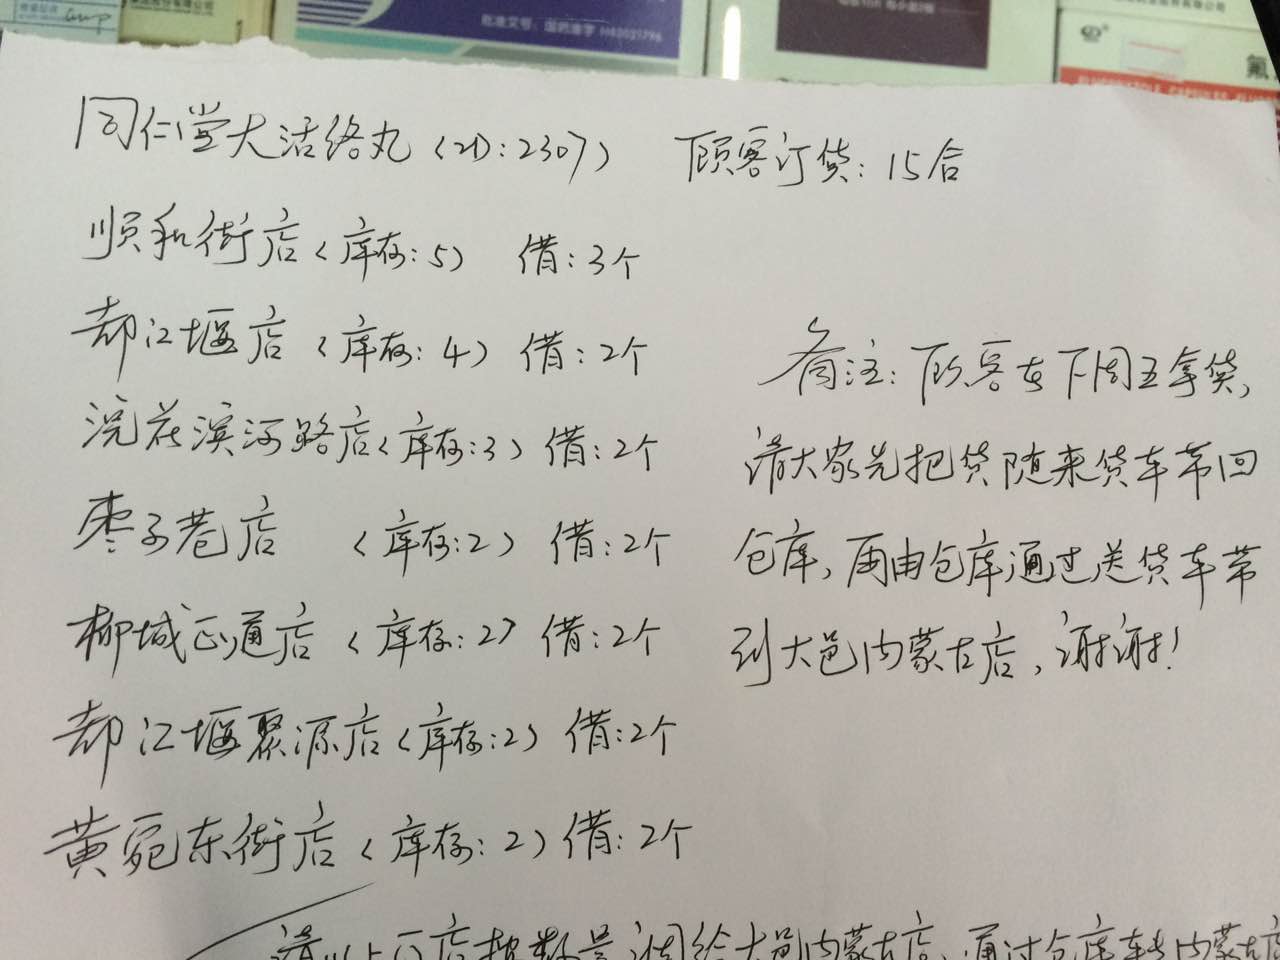 批准文号：国药准字 H43021796
氟
同仁堂大活络丸（ID：2307） 顾客订货：15合
顺和街店（库存：5） 借：3个
都江堰店（库存：4） 借：2个
浣花滨河路店（库存：3） 借：2个
枣子巷店 （库存：2） 借：2个
柳城正通店（库存：2） 借：2个
都江堰聚源店（库存：2） 借：2个
黄苑东街店（库存：2） 借：2个
备注：顾客在下周五拿货，
请大家先把货随来货车带回
仓库，再由仓库通过送货车带
到大邑内蒙古店，谢谢！
请以上门店按数量调给大邑内蒙古店，通过仓库转内蒙古店